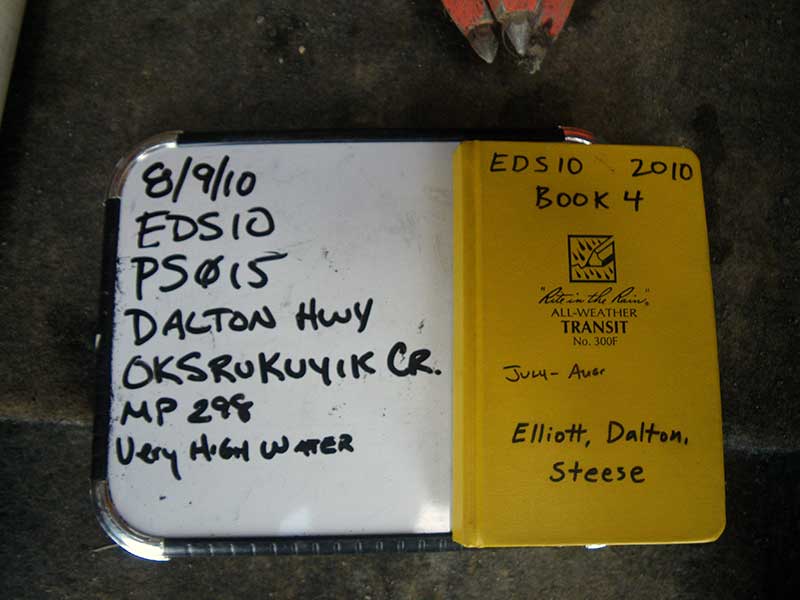 8/9/10
EDS10
PSØ15
DALTON HWY
OKSRUKUYIK CR.
MP 298
Very HIGH WATER
EDS10 2010
BOOK 4
"Rite in the Rain"®
ALL-WEATHER
TRANSIT
No. 300F
July - Aug
Elliott, Dalton,
Steese